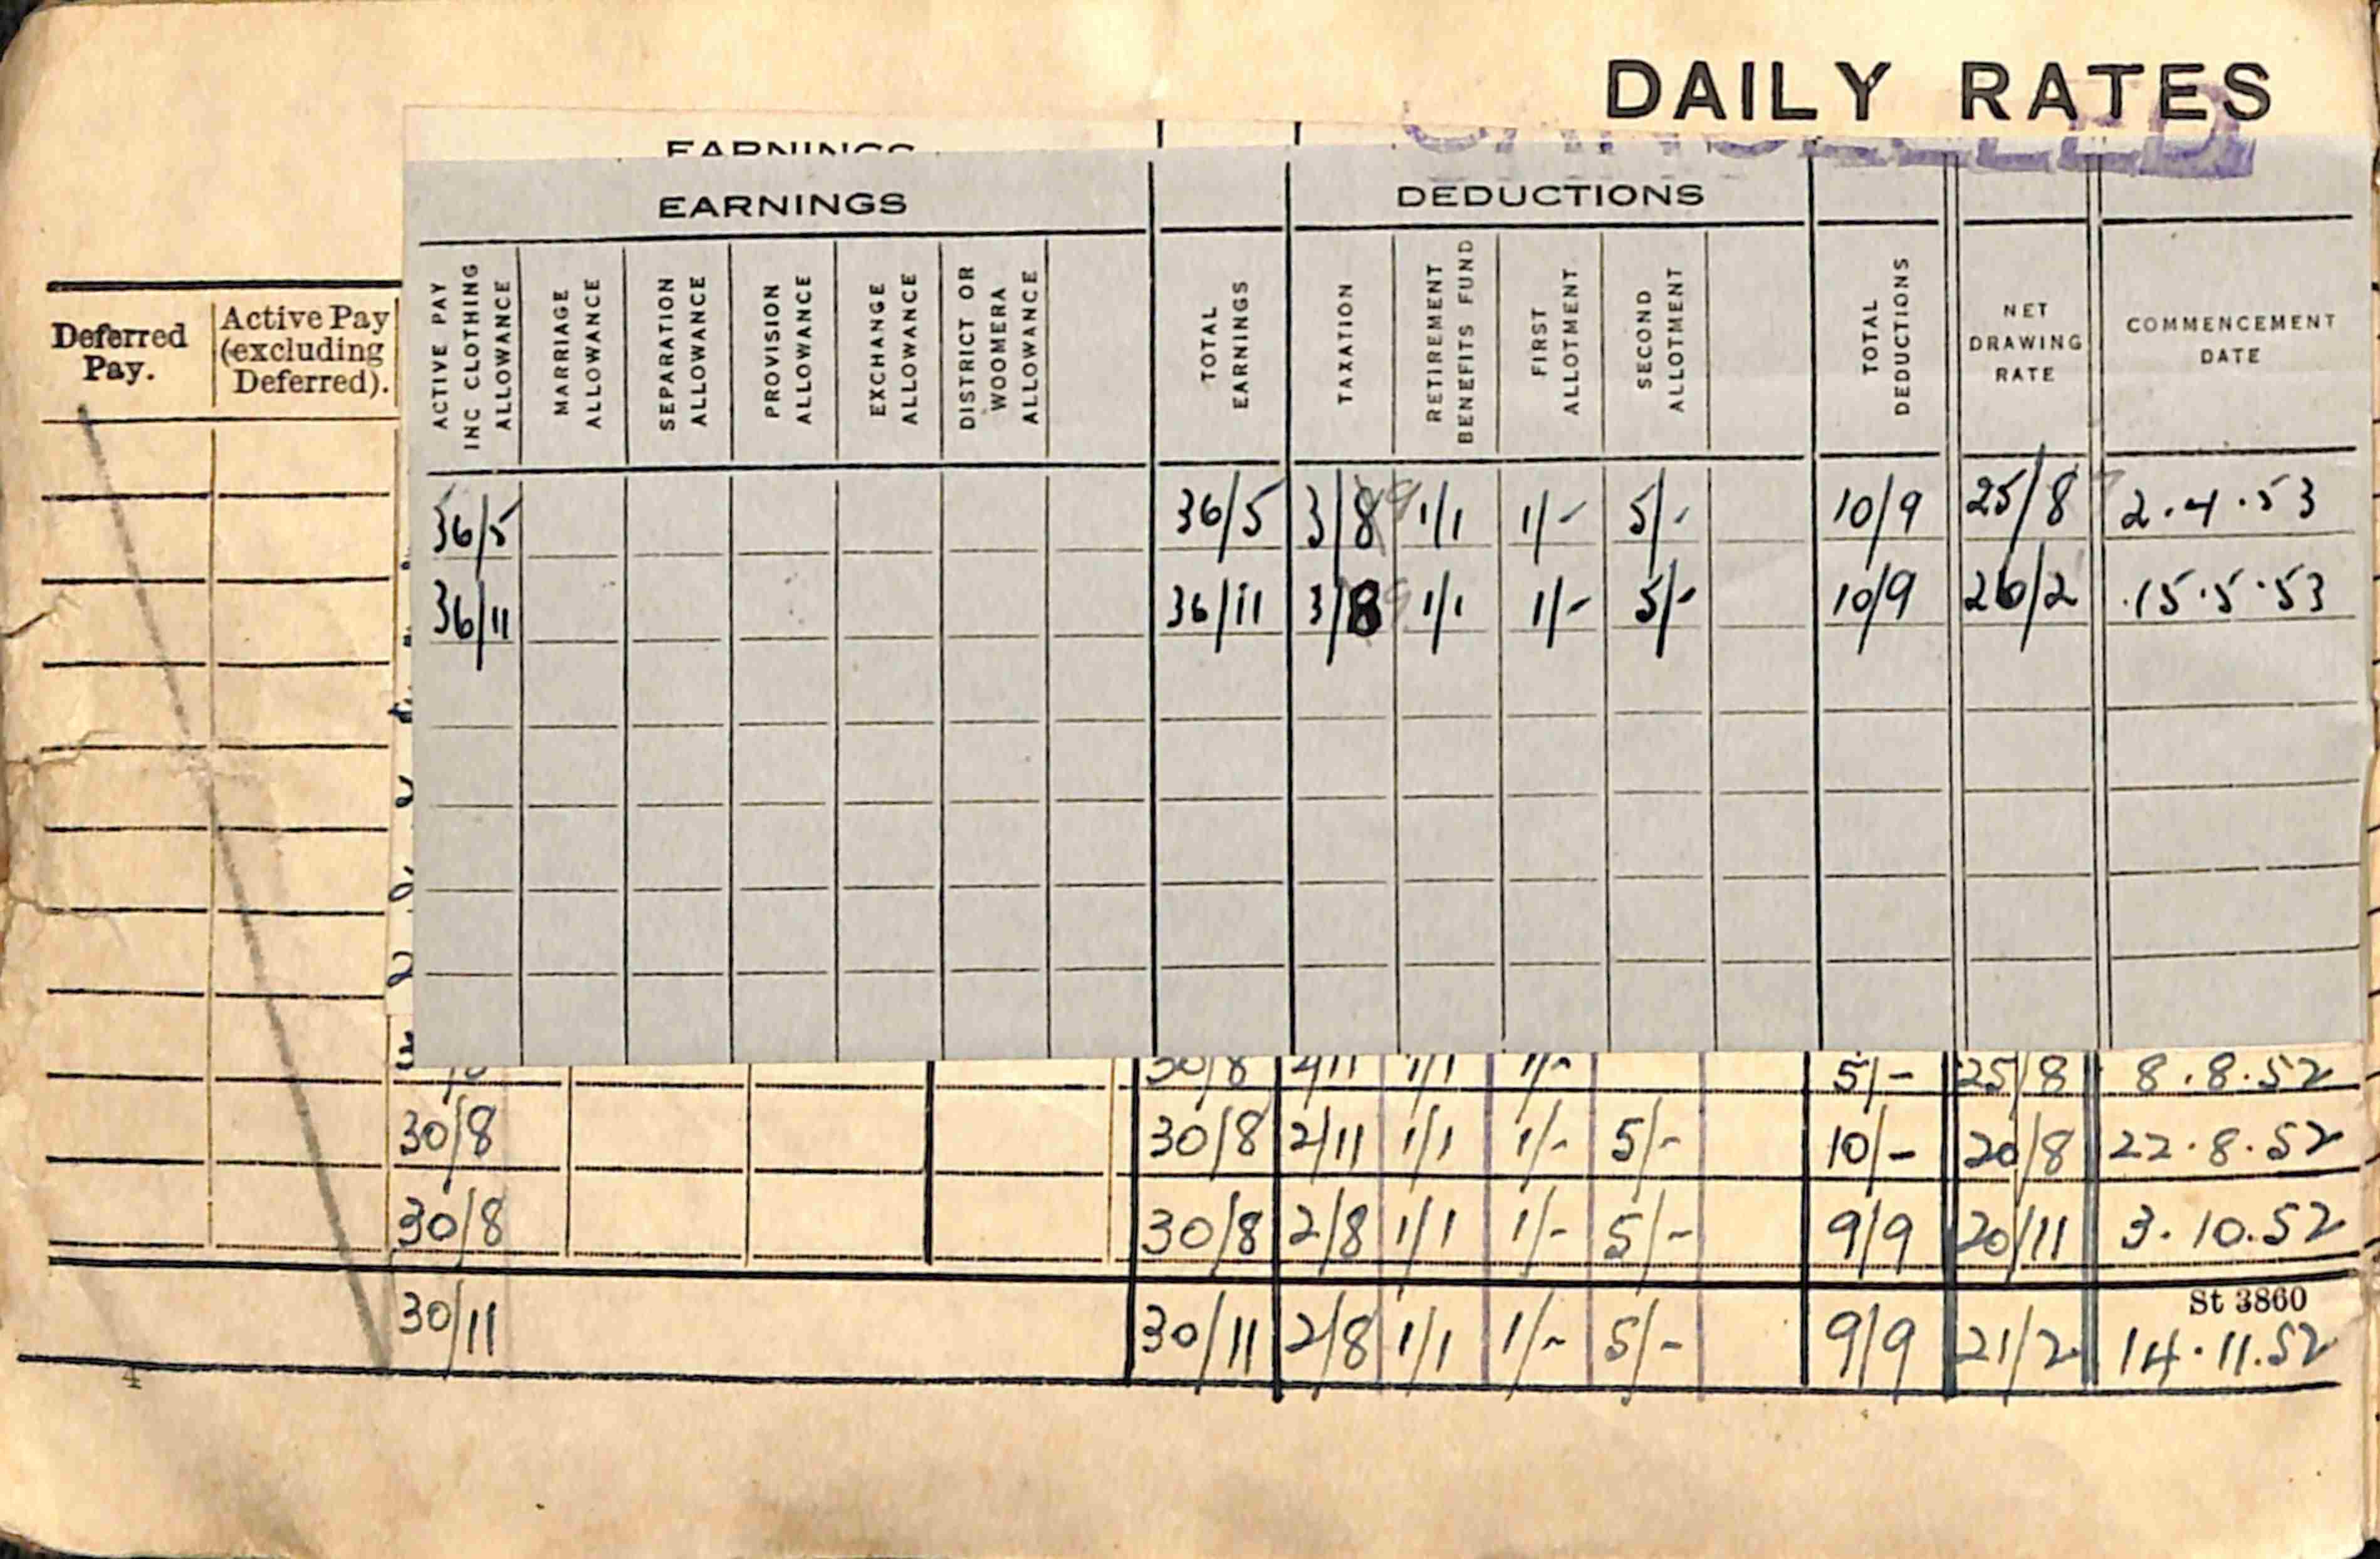 DAILY RATES
EARNINGS
EARNINGS DEDUCTIONS
Deferred Pay. Active Pay (excluding Deferred). ACTIVE PAY INC CLOTHING ALLOWANCE MARRIAGE ALLOWANCE SEPARATION ALLOWANCE PROVISION ALLOWANCE EXCHANGE ALLOWANCE DISTRICT OR WOOMERA ALLOWANCE TOTAL EARNINGS TAXATION RETIREMENT BENEFITS FUND FIRST ALLOTMENT SECOND ALLOTMENT TOTAL DEDUCTIONS NET DRAWING RATE COMMENCEMENT DATE
36/5 36/5 3/8 1/1 1/- 5/- 10/9 25/8 2.4.53
36/11 36/11 3/8 1/1 1/- 5/- 10/9 26/2 15.5.53
30/8 2/11 1/1 1/- 5/- 25/8 8.8.52
30/8 30/8 2/11 1/1 1/- 5/- 10/- 20/8 22.8.52
30/8 30/8 2/8 1/1 1/- 5/- 9/9 20/11 3.10.52
St 3860
30/11 30/11 2/8 1/1 1/- 5/- 9/9 21/2 14.11.52
4